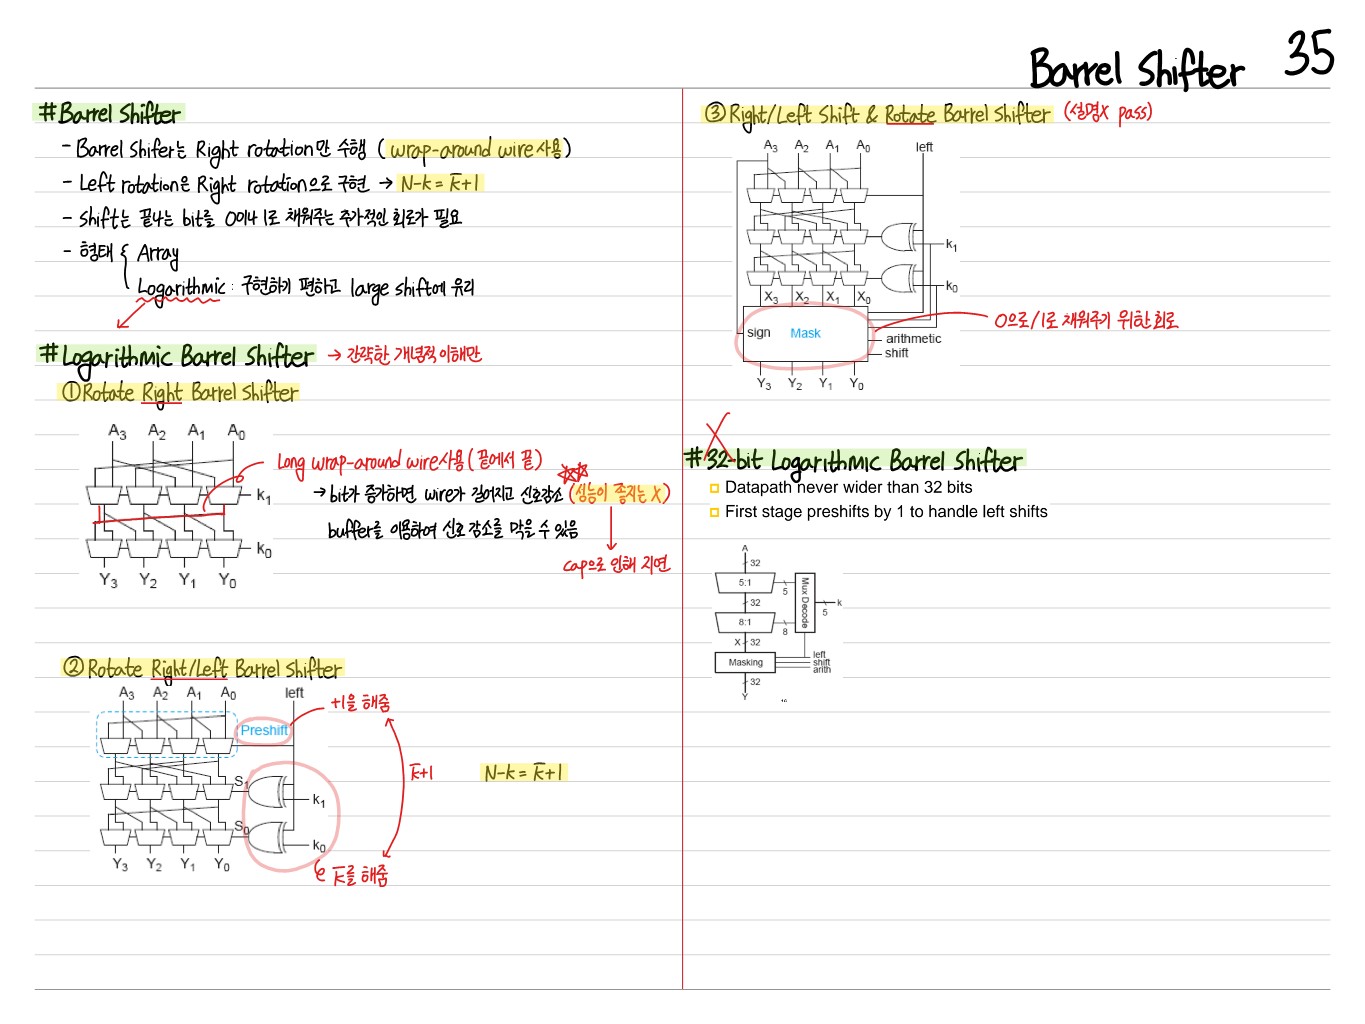 Barrel Shifter 35
# Barrel Shifter
- Barrel Shifer는 Right rotation만 수행 ( wrap-around wire 사용 )
- Left rotation은 Right rotation으로 구현 → N-k = k̅+1
- shift는 끝나는 bit를 0이나 1로 채워주는 추가적인 회로가 필요
- 형태 { Array
Logarithmic : 구현하기 편하고 large shift에 유리
# Logarithmic Barrel Shifter → 간략한 개념적 이해만
① Rotate Right Barrel Shifter
A3 A2 A1 A0
k1
k0
Y3 Y2 Y1 Y0
Long wrap-around wire 사용 ( 끝에서 끝 )
→ bit가 증가하면 wire가 길어지고 신호감소 (성능이 좋지는 X)
buffer를 이용하여 신호 감소를 막을 수 있음
cap으로 인해 지연
② Rotate Right/Left Barrel Shifter
A3 A2 A1 A0 left
Preshift
+1을 해줌
S1
k1
S0
k0
Y3 Y2 Y1 Y0
k̅+1
N-k = k̅+1
k̅를 해줌
③ Right/Left Shift & Rotate Barrel Shifter (설명X pass)
A3 A2 A1 A0 left
k1
k0
X3 X2 X1 X0
sign Mask
arithmetic
shift
Y3 Y2 Y1 Y0
0으로/1로 채워주기 위한 회로
X
# 32-bit Logarithmic Barrel Shifter
Datapath never wider than 32 bits
First stage preshifts by 1 to handle left shifts
A
32
5:1
5
Mux Decode
k
5
32
8:1
8
X 32
Masking
left
shift
arith
32
Y